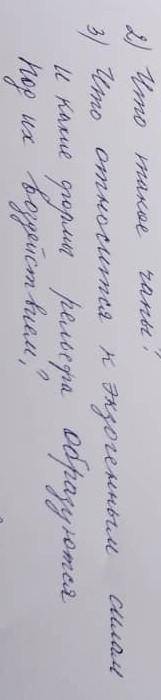 2) Что такое чапы?
3) Что относится к экзогенным силам
и какие формы рельефа образуются
под их воздействием?